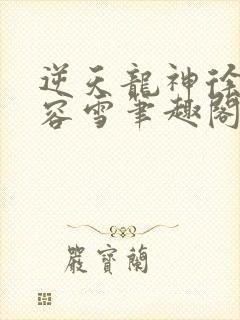 逆天龍神徐
容雪筆趣閣
嚴寶蘭